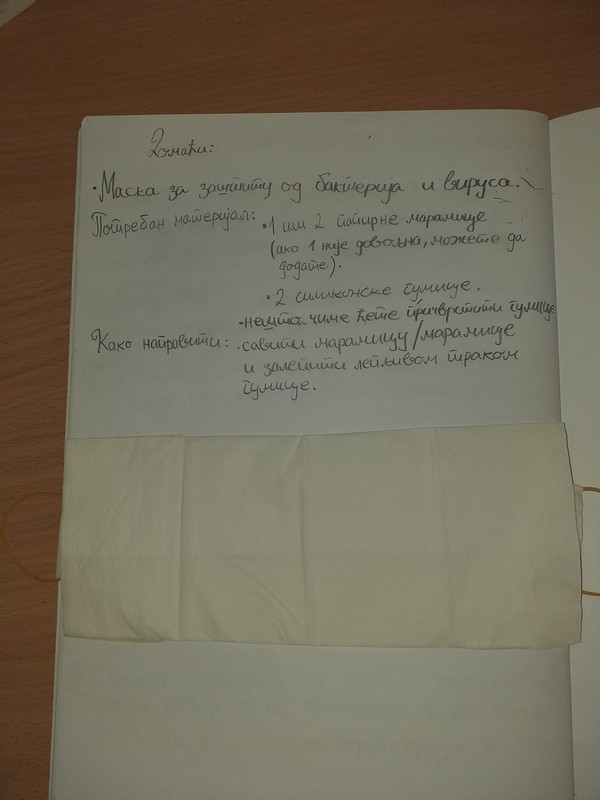 Домаћи:
• Маска за заштиту од бактерија и вируса.
Потребан материјал: • 1 или 2 папирне марамице
(ако 1 није довољна, можете да
додате).
• 2 силиконске гумице.
- нешто чиме ћете причврстити гумице
Како направити: • савити марамицу/марамице
и залепити лепљивом траком
гумице.